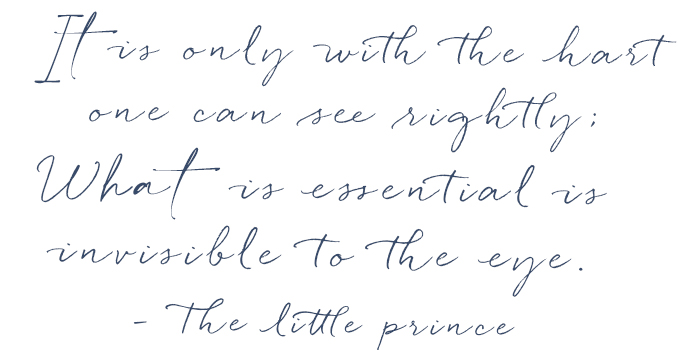 It is only with the hart
one can see rightly;
What is essential is
invisible to the eye.
- The little prince